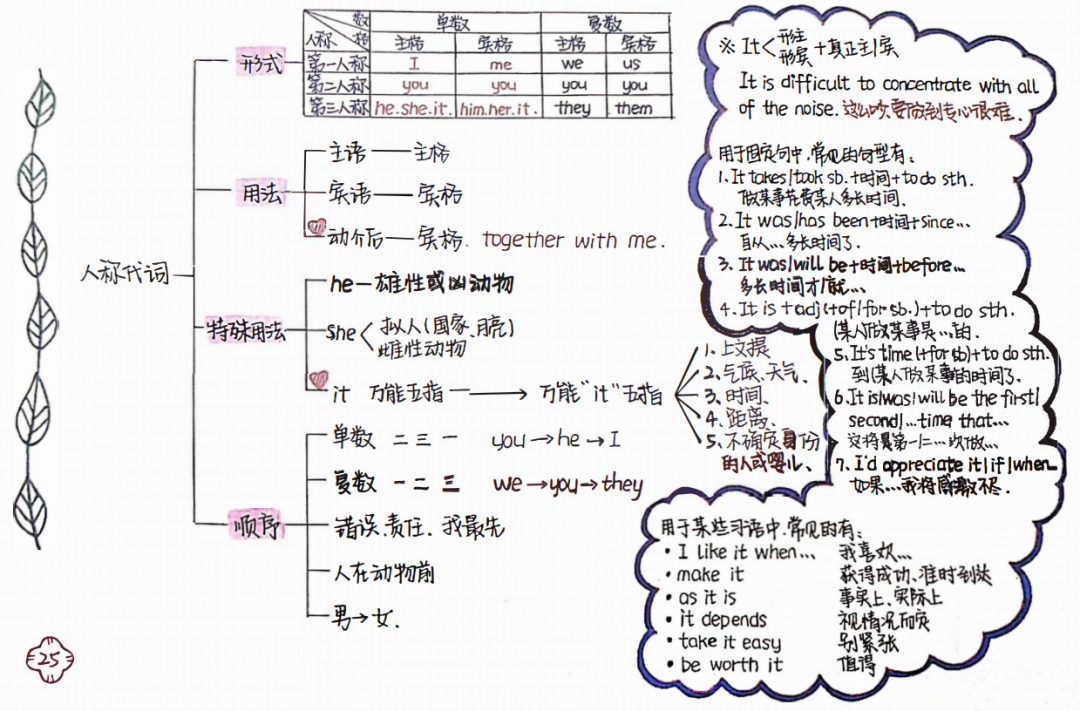 人称代词
形式
数
格
人称
单数
复数
主格 宾格 主格 宾格
第一人称 I me we us
第二人称 you you you you
第三人称 he.she.it. him.her.it. they them
用法
主语——主格
宾语——宾格
动介后——宾格. together with me.
特殊用法
he—雄性或凶动物
she<拟人(国家、月亮)
雌性动物
it 万能五指 → 万能"it"五指
1. 上文提
2. 气候、天气、
3. 时间、
4. 距离、
5. 不确定身份
的人或婴儿、
顺序
单数 二三一 you→he→I
复数 一二三 we→you→they
错误、责任、我最先
人在动物前
男→女.
※ It<形主
形宾
+真正主/宾
It is difficult to concentrate with all
of the noise. 这么吵,要做到专心很难.
用于固定句中,常见的句型有:
1. It takes/took sb.+时间+to do sth.
做某事花费某人多长时间.
2. It was/has been+时间+since...
自从...多长时间了.
3. It was/will be+时间+before...
多长时间才/就...
4. It is +adj(+of/for sb.)+to do sth.
(某人)做某事是...的.
5. It's time(+for sb)+to do sth.
到(某人)做某事的时间了.
6. It is/was/will be the first/
second/...time that...
这将是第一/二...次做...
7. I'd appreciate it/if/when
如果...我将感激不尽.
用于某些习语中,常见的有:
• I like it when... 我喜欢...
• make it 获得成功、准时到达
• as it is 事实上、实际上
• it depends 视情况而定
• take it easy 别紧张
• be worth it 值得
25